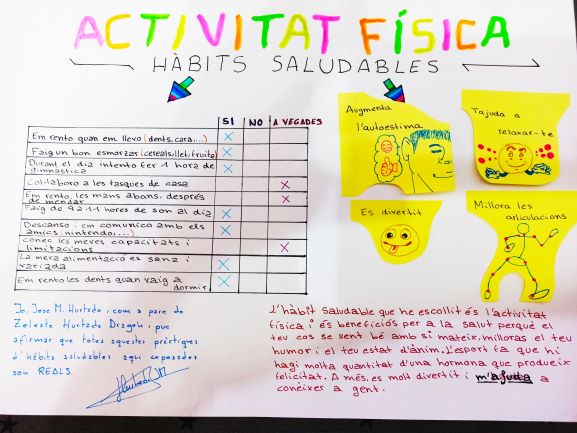 ACTIVITAT FÍSICA
HÀBITS SALUDABLES
SI NO A VEGADES
Em rento quan em llevo (dents, cara,...)
Faig un bon esmorzar (cereals, llet, fruita)
Durant el dia intento fer 1 hora de
gimnàstica
Col·laboro a les tasques de casa
Em rento les mans abans, després
de menjar
Faig de 9 a 11 hores de son al dia
Descanso i em comunico amb els
amics (nintendo,...)
conec les meves capacitats i
limitacions
La meva alimentació es sana i
variada
Em rento les dents quan vaig a
dormir
Augmenta
l'autoestima
T'ajuda a
relaxar-te
Es divertit
Millora les
articulacions
Jo, Jose M. Hurtado, com a pare de
Zeleste Hurtado Dragón, puc
afirmar que totes aquestes pràctiques
d'hàbits saludables aquí exposades
son REALS.
L'hàbit saludable que he escollit és l'activitat
física i és beneficiós per a la salut perquè el
teu cos se sent bé amb si mateix, milloras el teu
humor i el teu estat d'ànim. L'esport fa que hi
hagi molta quantitat d'una hormona que produeix
felicitat. A més, es molt divertit i m'ajuda a
conèixer a gent.